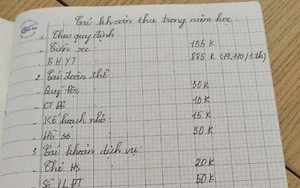 Các khoản thu trong năm học
1. Theo quy định
Gửi xe 135 K
BHYT 885 K
2. Các đoàn thể
Quỹ Đội 50 K
CTĐ 10 K
Kế hoạch nhỏ 15 K
Hồ sơ 30 K
3. Các khoản dịch vụ
Thẻ HS 20 K
Sổ LLĐT 50 K